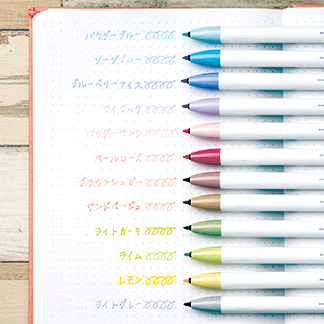 パウダーブルー
ソーダブルー
ブルーベリーアイス
ライラック
パウダーピンク
ペールローズ
ブラウンシュガー
サンドベージュ
ライトカーキ
ライム
レモン
ライトグレー